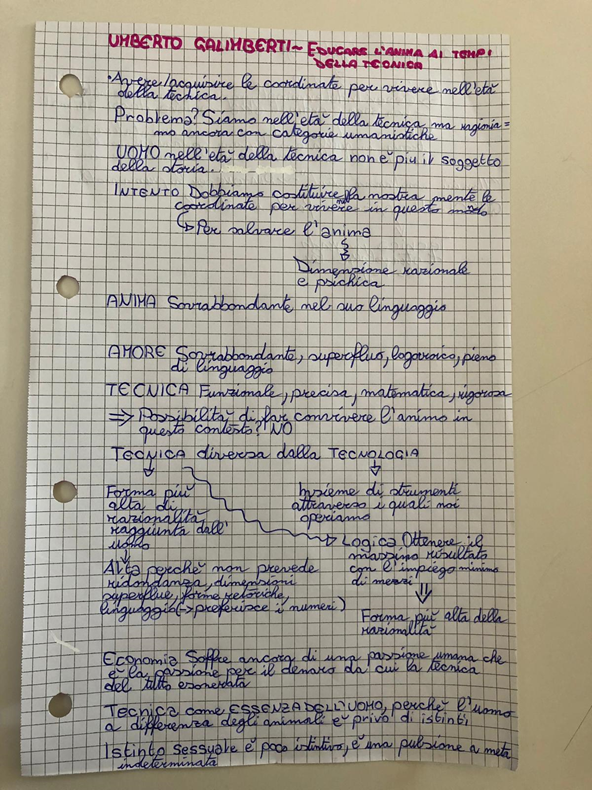 UMBERTO GALIMBERTI ~ EDUCARE L'ANIMA AI TEMPI
DELLA TECNICA
• Avere/acquisire le coordinate per vivere nell'età
della tecnica.
Problema? Siamo nell'età della tecnica ma ragionia=
mo ancora con categorie umanistiche
UOMO nell'età della tecnica non è più il soggetto
della storia.
INTENTO Dobbiamo costituire nella nostra mente le
coordinate per vivere in questo modo
↳ Per salvare l'anima
Dimensione razionale
e psichica
ANIMA Sovrabbondante nel suo linguaggio
AMORE Sovrabbondante, superfluo, logorroico, pieno
di linguaggio
TECNICA Funzionale, precisa, matematica, rigorosa
⇒ Possibilità di far convivere l'animo in
questo contesto? NO
TECNICA diversa dalla TECNOLOGIA
Forma più
alta di
razionalità
raggiunta dall'
uomo
Insieme di strumenti
attraverso i quali noi
operiamo
Alta perché non prevede
ridondanza, dimensioni
superflue, forme retoriche,
linguaggio (→ preferisce i numeri)
Logica Ottenere il
massimo risultato
con l'impiego minimo
di mezzi
Forma più alta della
razionalità
Economia Soffre ancora di una passione umana che
è la passione per il denaro da cui la tecnica
del tutto esonerata
Tecnica come ESSENZA DELL'UOMO, perché l'uomo
a differenza degli animali è privo di istinti,
Istinto sessuale è poco istintivo, è una pulsione a meta
indeterminata